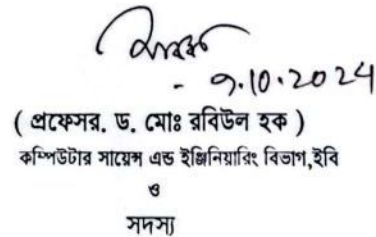 - ৭.10.2024
( প্রফেসর. ড. মোঃ রবিউল হক )
কম্পিউটার সায়েন্স এন্ড ইঞ্জিনিয়ারিং বিভাগ,ইবি
ও
সদস্য